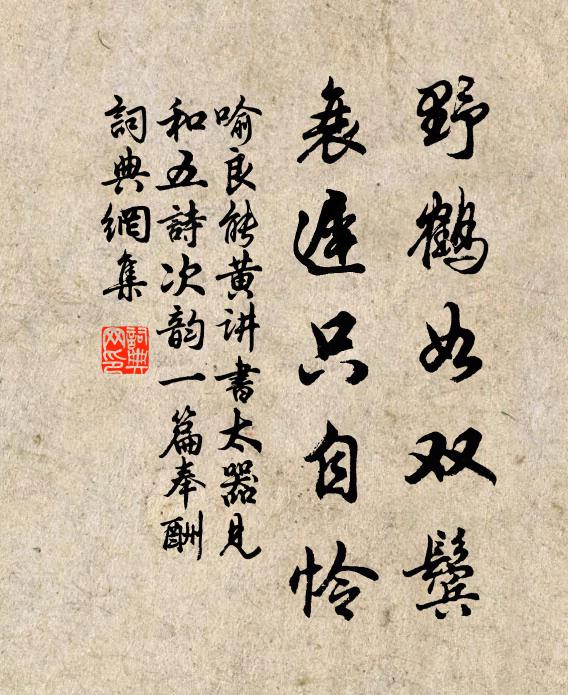 野鹤如双鬓
衰遲只自怜
喻良能黄讲書太器見
和五詩次韵一篇奉酬
詞典網集
詞典
网印